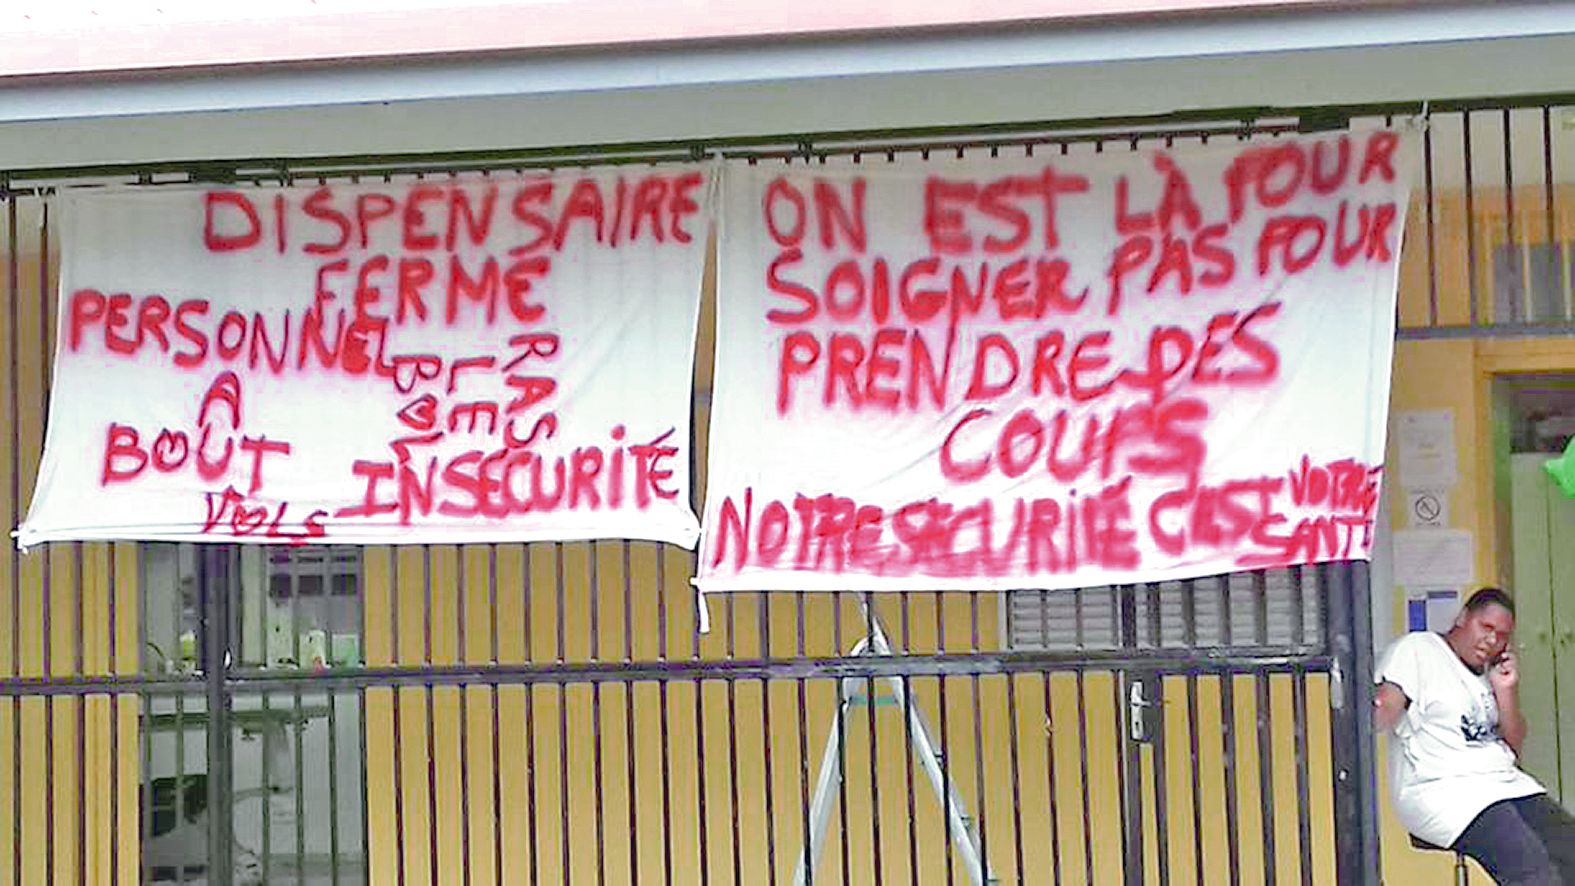 DISPENSAIRE
FERMÉ
PERSONNEL
A
BOUT
RAS
LE
BOL
INSÉCURITÉ
VOLS
ON EST LÀ POUR
SOIGNER PAS POUR
PRENDRE DES
COUPS
NOTRE SÉCURITÉ C'EST VOTRE
SANTÉ